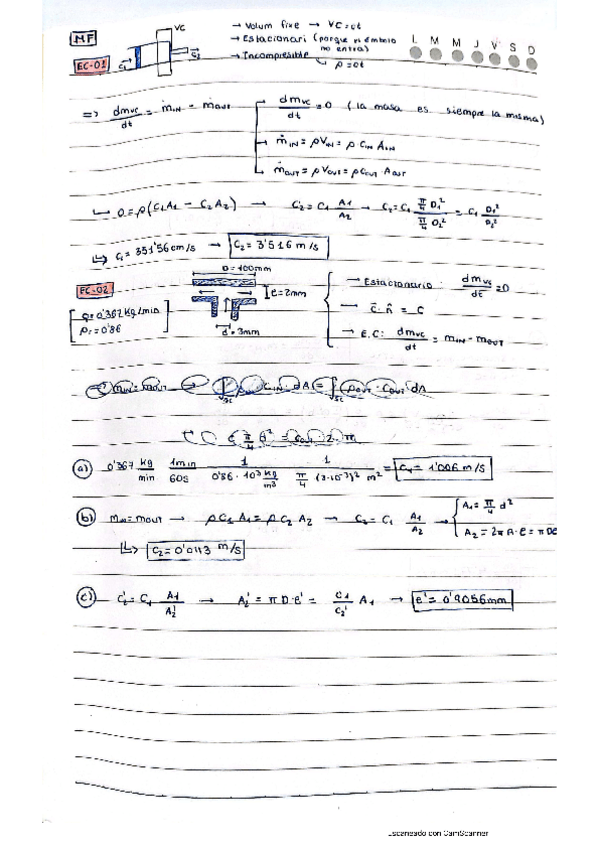 MF
VC
→ Volum fixe → VC = ct
→ Estacionari (porque ni émbolo no entra)
→ Incompresible ↳ ρ = ct
L M M J V S D
EC-01
C₁ C₂
⇒ dmvc/dt = ṁIN - ṁOUT
dmvc/dt = 0 (la masa es siempre la misma)
ṁIN = ρVIN = ρ CIN AIN
ṁOUT = ρVOUT = ρCOUT · AOUT
↳ 0 = ρ(C₁A₁ - C₂A₂) → C₂ = C₁ A₁/A₂ → C₂ = C₁ (π/4 D₁²)/(π/4 D₂²) = C₁ D₁²/D₂²
↳ C₂ = 351'56 cm/s → C₂ = 3'516 m/s
EC-02
D = 100mm
e = 2mm
d = 3mm
Q = 0'367 kg/min
ρr = 0'86
→ Estacionario: dmvc/dt = 0
→ C̄ · n̂ = C
→ E.C: dmvc/dt = ṁIN - ṁOUT
a) 0'367 kg/min 1min/60s 1/(0'86 · 10³ kg/m³) 1/(π/4 (3·10⁻³)² m²) = C₁ = 1'006 m/s
b) ṁIN = ṁOUT → ρC₁A₁ = ρC₂A₂ → C₂ = C₁ A₁/A₂ → A₁ = π/4 d²
A₂ = 2πR·e = πDe
↳ C₂ = 0'0113 m/s
c) C₂' = C₁ A₁/A₂' → A₂' = πD·e' = C₁/C₂' A₁ → e' = 0'9056mm
Escaneado con CamScanner